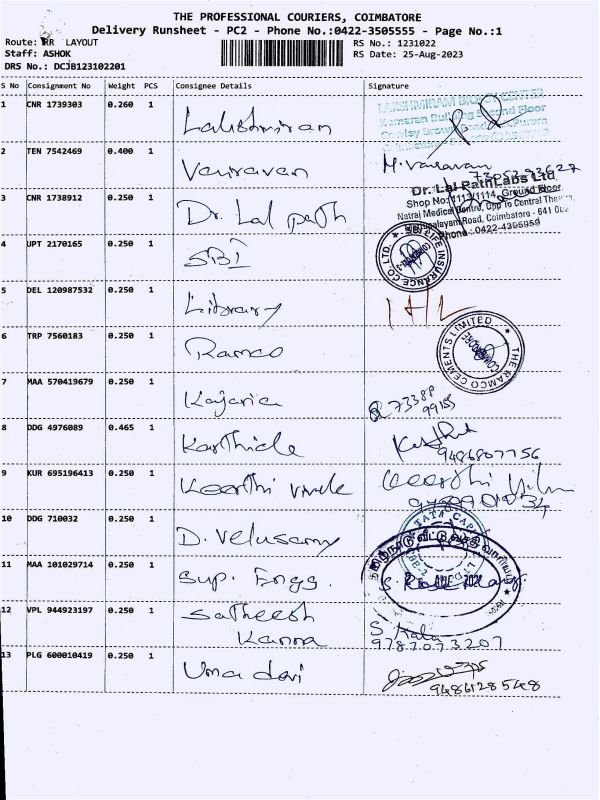 THE PROFESSIONAL COURIERS, COIMBATORE
Delivery Runsheet - PC2 - Phone No.:0422-3505555 - Page No.:1
Route: RR LAYOUT
RS No.: 1231022
Staff: ASHOK
RS Date: 25-Aug-2023
DRS No.: DCJB123102201
S No Consignment No Weight PCS Consignee Details Signature
1 CNR 1739303 0.260 1 Lakshmiran
LAKSHMIRAM
Kamaran Building Second Floor
Cowley Brown
2 TEN 7542469 0.400 1 Vairavan M. Vairavan
3 CNR 1738912 0.250 1 Dr. Lal path
Dr. Lal PathLabs Ltd.
Shop No: 1113/1114, Ground Floor
Natraj Medical Centre, Opp to Central Theatre,
Road, Coimbatore - 641 002
Phone: 0422-4395959
4 UPT 2170165 0.250 1 SBI
LIFE INSURANCE CO LTD.
5 DEL 120987532 0.250 1 Library
6 TRP 7560183 0.250 1 Ramco
THE RAMCO CEMENTS LIMITED
COIMBATORE
7 MAA 570419679 0.250 1 Kajaria 7338P
99155
8 DDG 4976089 0.465 1 Karthick
9486807756
9 KUR 695196413 0.250 1 Keerthi vivek Keerthi
10 DDG 710032 0.250 1 D. Velusamy
TATA CAPI
11 MAA 101029714 0.250 1 Sup. Engg.
தமிழ்நாடு வீட்டு வசதி வாரியம்
12 VPL 944923197 0.250 1 Satheesh
Kanna
S Kala
9787073207
13 PLG 600010419 0.250 1 Uma devi
9486128548